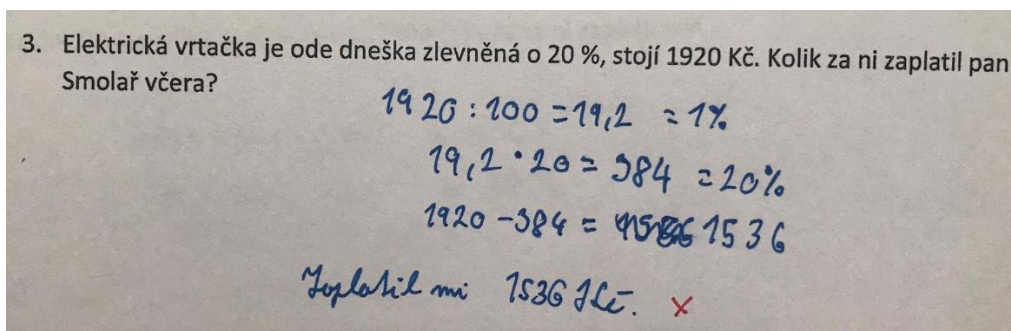 3. Elektrická vrtačka je ode dneška zlevněná o 20 %, stojí 1920 Kč. Kolik za ni zaplatil pan
Smolař včera?
1920 : 100 = 19,2 = 1%
19,2 · 20 = 384 = 20%
1920 - 384 = 1536
Zaplatil 1536 Kč. x